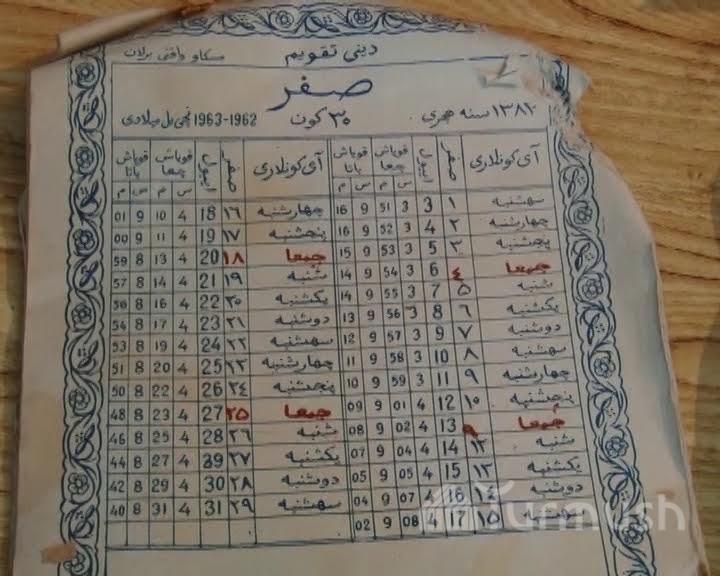 دینی تقویم مسکاو واقتی برلان
صفر
۱۳۸۲ سنه هجری ۳۰ کون 1962-1963 نچی یل میلادی
آی کونلاری صفر اییول قویاش چغا قویاش باتا آی کونلاری صفر اییول قویاش چغا قویاش باتا
س م س م س م س م
سهشنبه ۱ 3 3 51 9 16 چهارشنبه ۱۶ 18 4 10 9 01
چهارشنبه ۲ 4 3 52 9 16 پنجشنبه ۱۷ 19 4 11 9 00
پنجشنبه ۳ 5 3 53 9 15 جمعا ۱۸ 20 4 13 8 59
جمعا ۴ 6 3 54 9 14 شنبه ۱۹ 21 4 14 8 57
شنبه ۵ 7 3 55 9 14 یکشنبه ۲۰ 22 4 16 8 56
یکشنبه ۶ 8 3 56 9 13 دوشنبه ۲۱ 23 4 17 8 54
دوشنبه ۷ 9 3 57 9 12 سهشنبه ۲۲ 24 4 19 8 53
سهشنبه ۸ 10 3 58 9 11 چهارشنبه ۲۳ 25 4 20 8 51
چهارشنبه ۹ 11 3 59 9 10 پنجشنبه ۲۴ 26 4 22 8 50
پنجشنبه ۱۰ 12 4 01 9 09 جمعا ۲۵ 27 4 23 8 48
جمعا ۹ 13 4 02 9 08 شنبه ۲۶ 28 4 25 8 46
شنبه ۱۲ 14 4 04 9 07 یکشنبه ۲۷ 29 4 27 8 44
یکشنبه ۱۳ 15 4 05 9 05 دوشنبه ۲۸ 30 4 29 8 42
دوشنبه ۱۴ 16 4 07 9 04 سهشنبه ۲۹ 31 4 31 8 40
۱۵ 17 4 08 9 02
Turmush